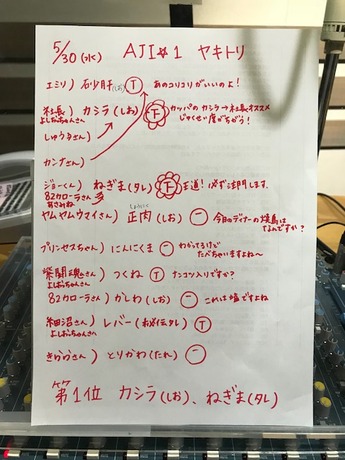 5/30(水) AJI☆1 ヤキトリ
エミリ) 砂肝(しお) T あのコリコリがいいのよ!
社長) カシラ(しお) T カッパのカシラ→社長オススメ
よしおちゃんさん じゅくせい度がちがう!
しゅうさん)
カンナさん)
ジョーくん) ねぎま(タレ) T 王道!必ず注門します。
82カローラさん
ヤムヤムウマイさん) 正肉(しお) 一 今日のディナーの焼鳥は
なんですか?
プリンセスちゃん) にんにくま 一 わかってるけど
たべちゃいますよね〜
紫闘魂さん) つくね T ナンコツ入りですか?
よしおちゃんさん
82カローラさん) かしわ(しお) 一 これは塩ですよね
細沼さん) レバー(秘伝タレ) T
よしおちゃんさん
きららさん) とりかわ(たれ) 一
第1位 カシラ(しお)、ねぎま(タレ)